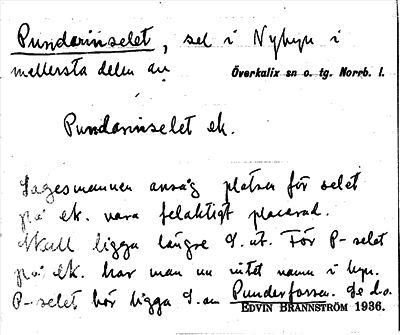 Pundarinselet, sel i Nybyn i
mellersta delen av Överkalix sn o. tg. Norrb. l.
Pundarinselet ek.
Sagesmannen ansåg platsen för selet
på ek. vara felaktigt placerad.
Skall ligga längre S. ut. För P-selet
på ek. har man nu intet namn i byn.
P-selet bör ligga S. om Punderforsen. Se d.o.
EDVIN BRÄNNSTRÖM 1936.